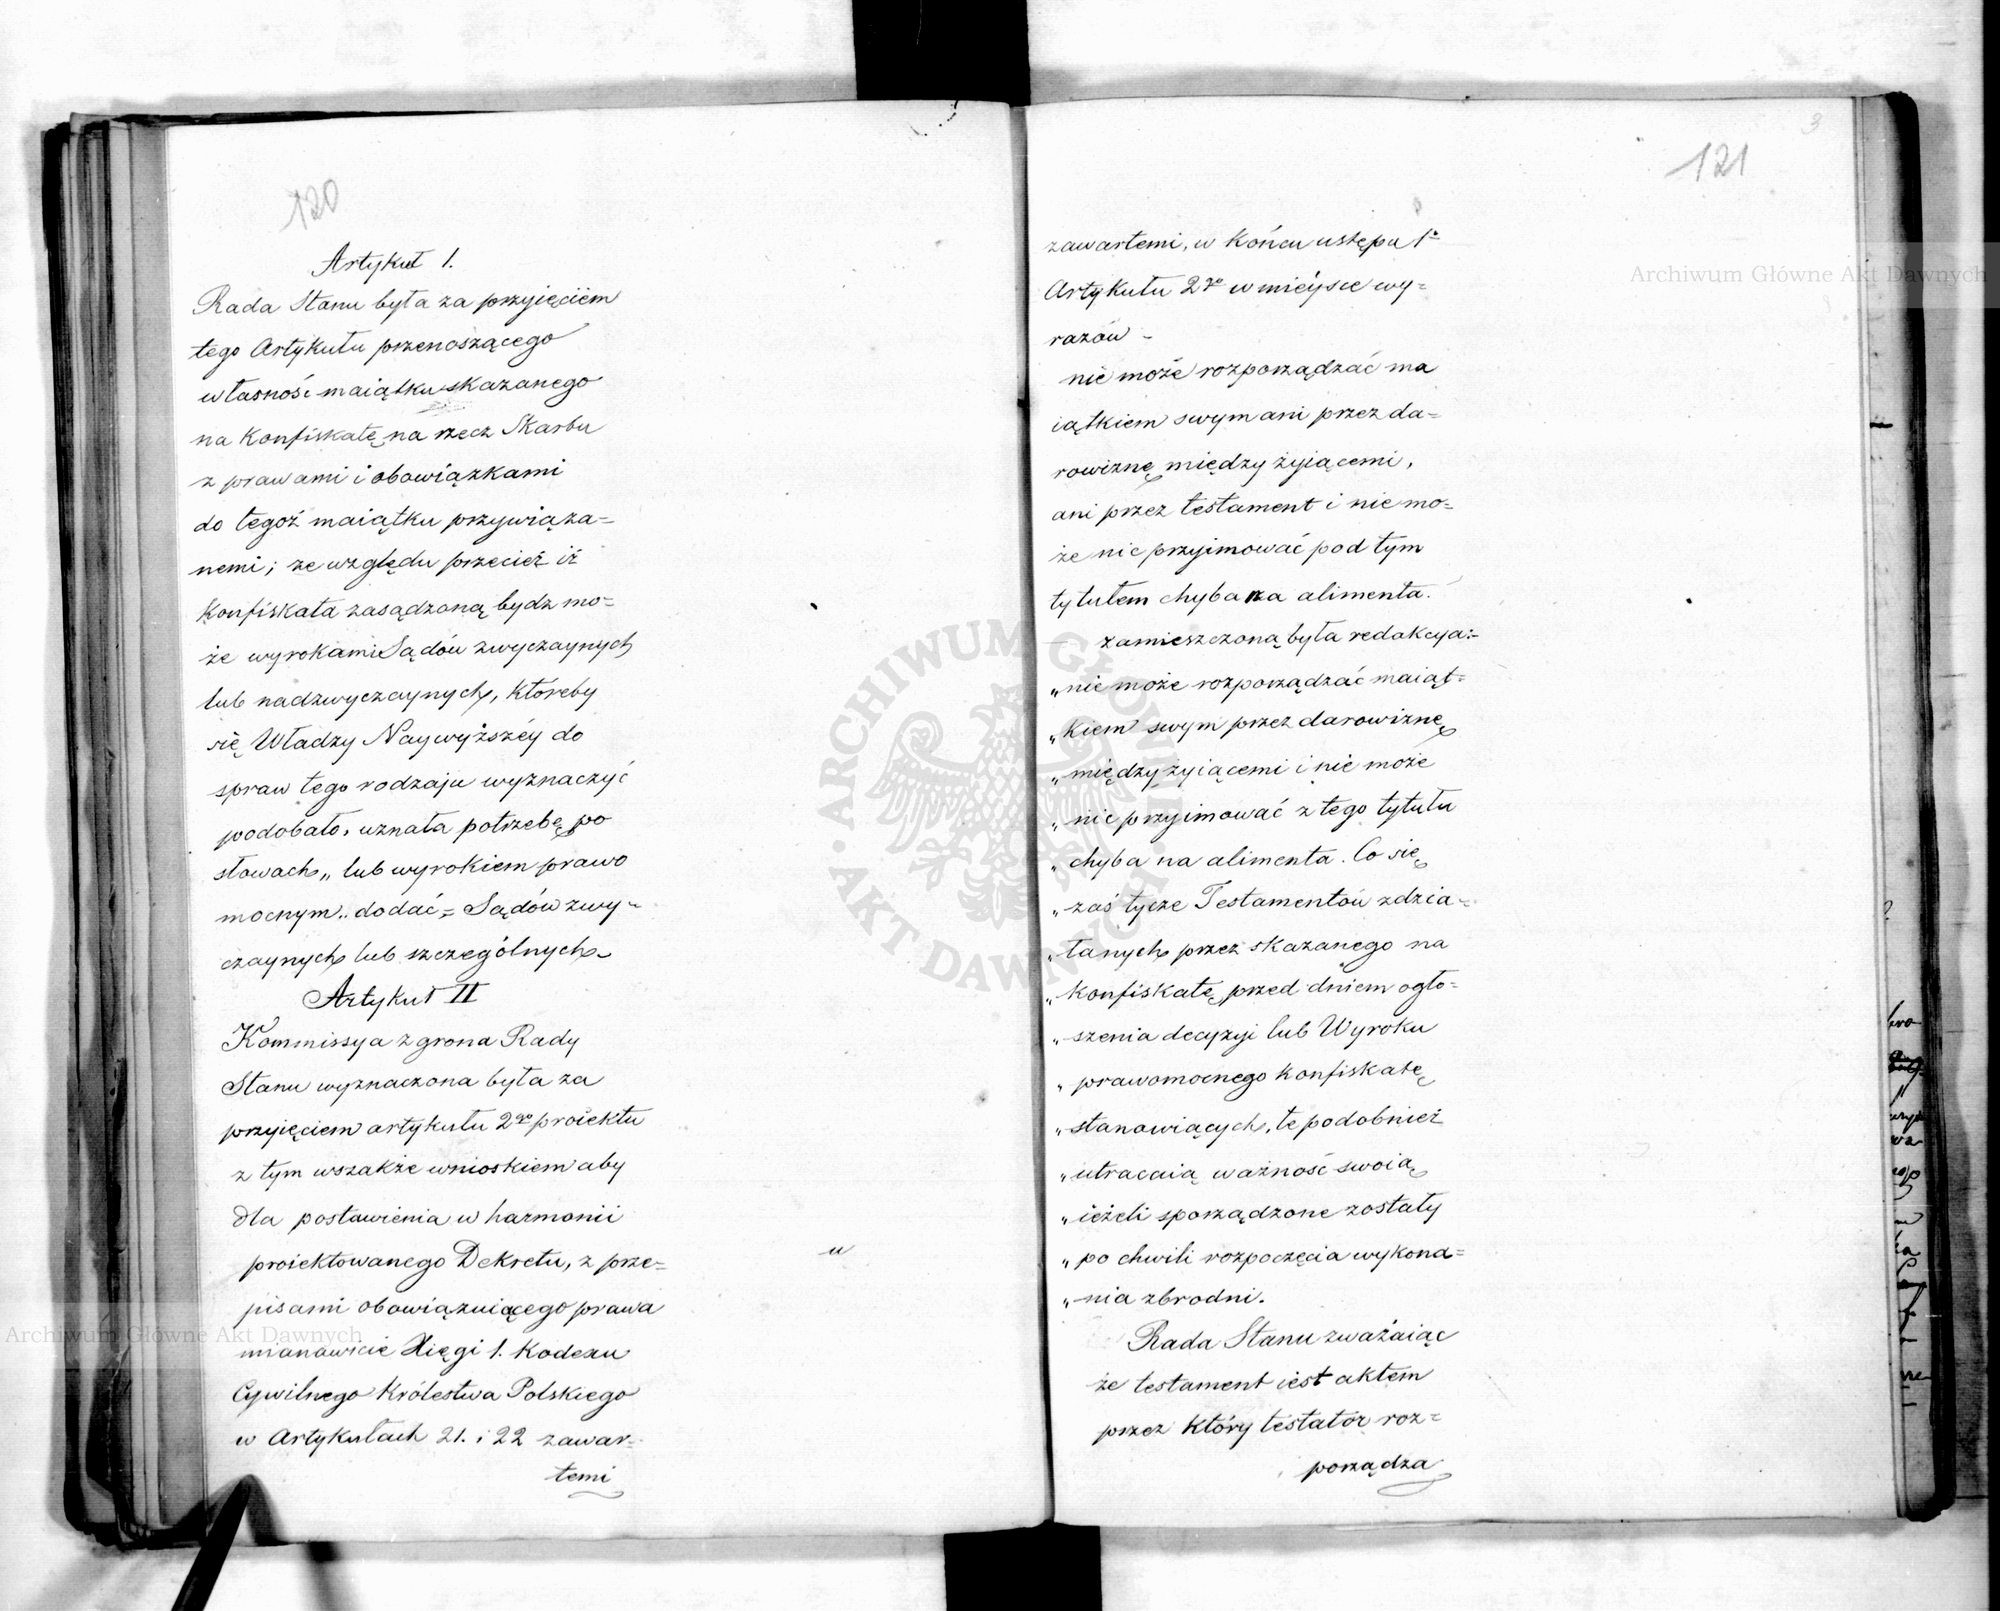 120
Artykuł 1.
Rada Stanu była za przyjęciem
tego Artykułu przenoszącego
własność maiątku skazanego
na konfiskatę na rzecz Skarbu
z prawami i obowiązkami
do tegoż maiątku przywiąza=
nemi; ze względu przecież iż
Konfiskata zasądzoną bydz mo=
że wyrokami Sądów zwyczaynych
lub nadzwyczaynych, któreby
się Władzy Naywyższéy do
spraw tego rodzaju wyznaczyć
podobało, uznała potrzebę po
słowach „ lub wyrokiem prawo
mocnym „ dodać = Sądów zwy=
czaynych lub szczególnych
Artykuł II
Kommissya z grona Rady
Stanu wyznaczona była za
przyięciem artykułu 2go proiektu
z tym wszakże wnioskiem aby
dla postawienia w harmonii
proiektowanego Dekretu, z prze=
pisami obowiązuiącego prawa
mianowicie Xięgi 1. Kodexu
Cywilnego Królestwa Polskiego
w Artykułach 21. i 22 zawar=
temi
121
3
zawartemi, w końcu ustępu 1o
Artykułu 2go w mieysce wy=
razów -
nie może rozporządzać ma
iątkiem swym ani przez da=
rowiznę między żyiącemi,
ani przez testament i nie mo=
że nic przyimować pod tym
tytułem chyba na alimenta.
zamieszczoną była redakcya:-
„ nie może rozporządzać maiąt=
„ kiem swym przez darowiznę
„ między żyiącemi i nie może
„ nic przyimować z tego tytułu
„ chyba na alimenta. Co się
„ zaś tycze Testamentów zdzia=
„ łanych przez skazanego na
„ konfiskatę przed dniem ogło=
„ szenia decyzyi lub Wyroku
„ prawomocnego konfiskatę
„ stanowiących, te podobnież
„ utracaią ważność swoią
„ ieżeli sporządzone zostały
„ po chwili rozpoczęcia wykona=
„ nia zbrodni.
Rada Stanu zważaiąc
że testament iest aktem
przez który testator roz=
porządza
Archiwum Główne Akt Dawnych
Archiwum Główne Akt Dawnych
ARCHIWUM GŁÓWNE AKT DAWNYCH